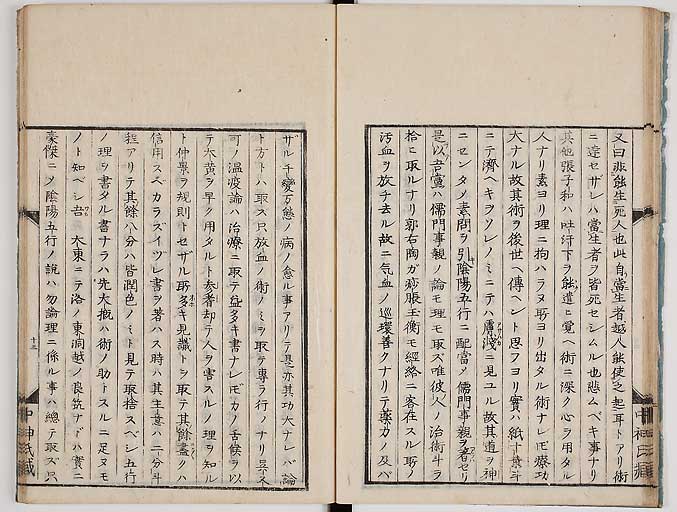 又曰非能生死人也此自當生者越人能使之起耳トアリ術
ニ達セサレハ當生者ヲ皆死セシムル也悲ムベキ事ナリ
其他張子和ハ吐汗下ヲ能遣ヒ覚ヘ術ニ深ク心ヲ用タル
人ナリ素ヨリ理ニ拘ハラヌ所ヨリ出タル術ナレモ療功
大ナル故其術ヲ後世ヘ傳ヘント思フヨリ實ハ紙十葉斗
ニテ濟ヘキヲソレノミニテハ膚浅ニ見ユル故其道ヲ神
ニセンタメ素問ヲ引陰陽五行ニ配當メ儒門事親ヲ著セリ
是以吾黨ハ儒門事親ノ論モ理モ取ズ唯彼人ノ治術斗ヲ
拾ニ取ルナリ郭右陶カ痧脹玉衡モ經絡ニ客在スル所ノ
汚血ヲ放チ去ル故ニ気血ノ巡環善クナリテ藥力ノ及バ
ザル千變万態ノ病ノ愈ル事アリテ是亦其功大ナレバ論
ト方トハ取ズ只放血ノ術ノミヲ取テ專ラ行ノナリ吳又
可ノ温疫論ハ治療ニ取テ益多キ書ナレモカノ舌候ヲ以
テ大黄ヲ早ク用タルト参者却テ人ヲ害スルノ理ヲ知ル
ト仲景ヲ規則トセザル所多キ見識トヲ取テ其餘盡クハ
信用スベカラズイヅレ書ヲ著ハス時ハ其主意ハ二分斗
程アリテ其餘八分ハ皆潤色ノミト見テ取捨スベシ五行
ノ理ヲ書タル書ナラハ先大概ハ術ノ助トスルニ足ヌモ
ノト知ベシ吾 大東ニテ洛ノ東洞越ノ良筑ナドハ實ニ
豪傑ニメ陰陽五行ノ説ハ勿論理ニ係ル事ハ總テ取ズ只
十三
中神氏藏
中神氏藏